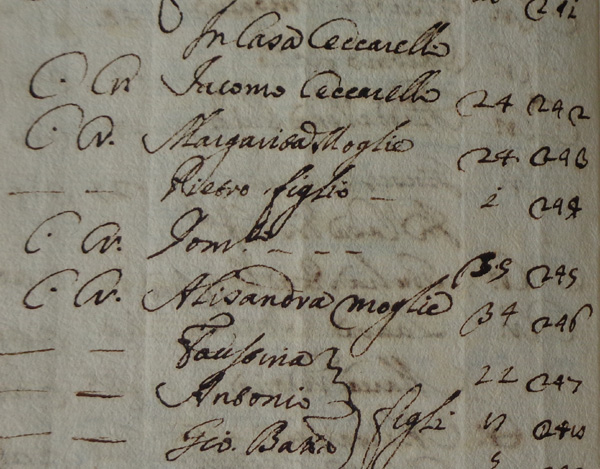 242
In Casa Ceccarelli
C. Cr. Iacomo Ceccarelli 24 242
C. Cr. Margarita Moglie 24 243
— — Pietro figlio — 2 244
C. Cr. Dom.co — — — 35 245
C. Cr. Alisandra moglie 34 246
— — Faustina 11 247
— — Antonio
— — Gio. Batta figli